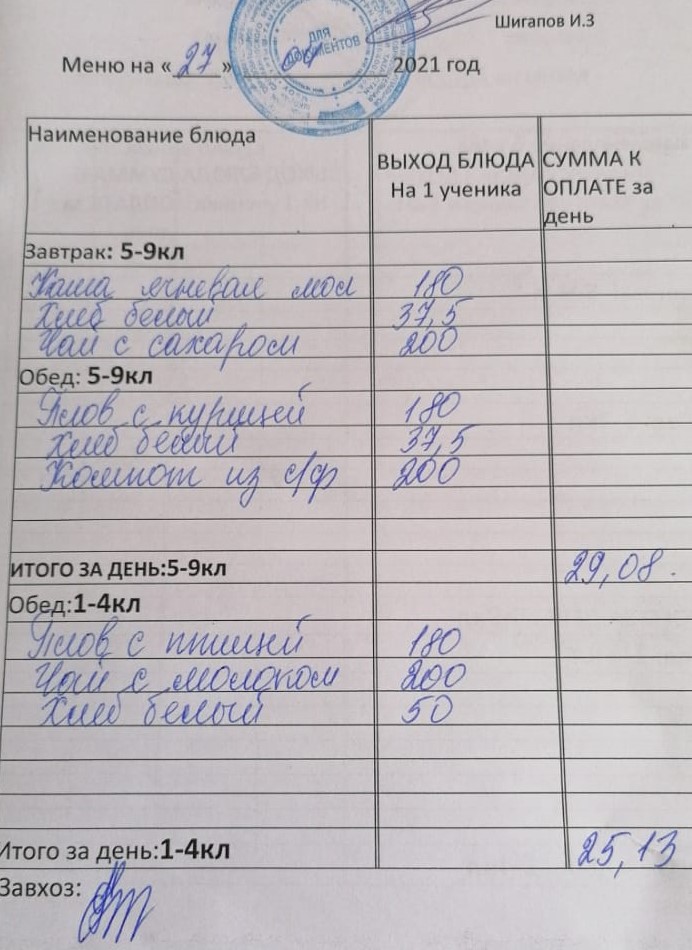 Шигапов И.З
ДЛЯ
ДОКУМЕНТОВ
Меню на « 27 » 2021 год
Наименование блюда
ВЫХОД БЛЮДА На 1 ученика
СУММА К ОПЛАТЕ за день
Завтрак: 5-9кл
Каша ячневая мол 180
Хлеб белый 37,5
Чай с сахаром 200
Обед: 5-9кл
Плов с курицей 180
Хлеб белый 37,5
Компот из с/ф 200
ИТОГО ЗА ДЕНЬ:5-9кл 29,08.
Обед:1-4кл
Плов с птицей 180
Чай с молоком 200
Хлеб белый 50
Итого за день:1-4кл 25,13
Завхоз: